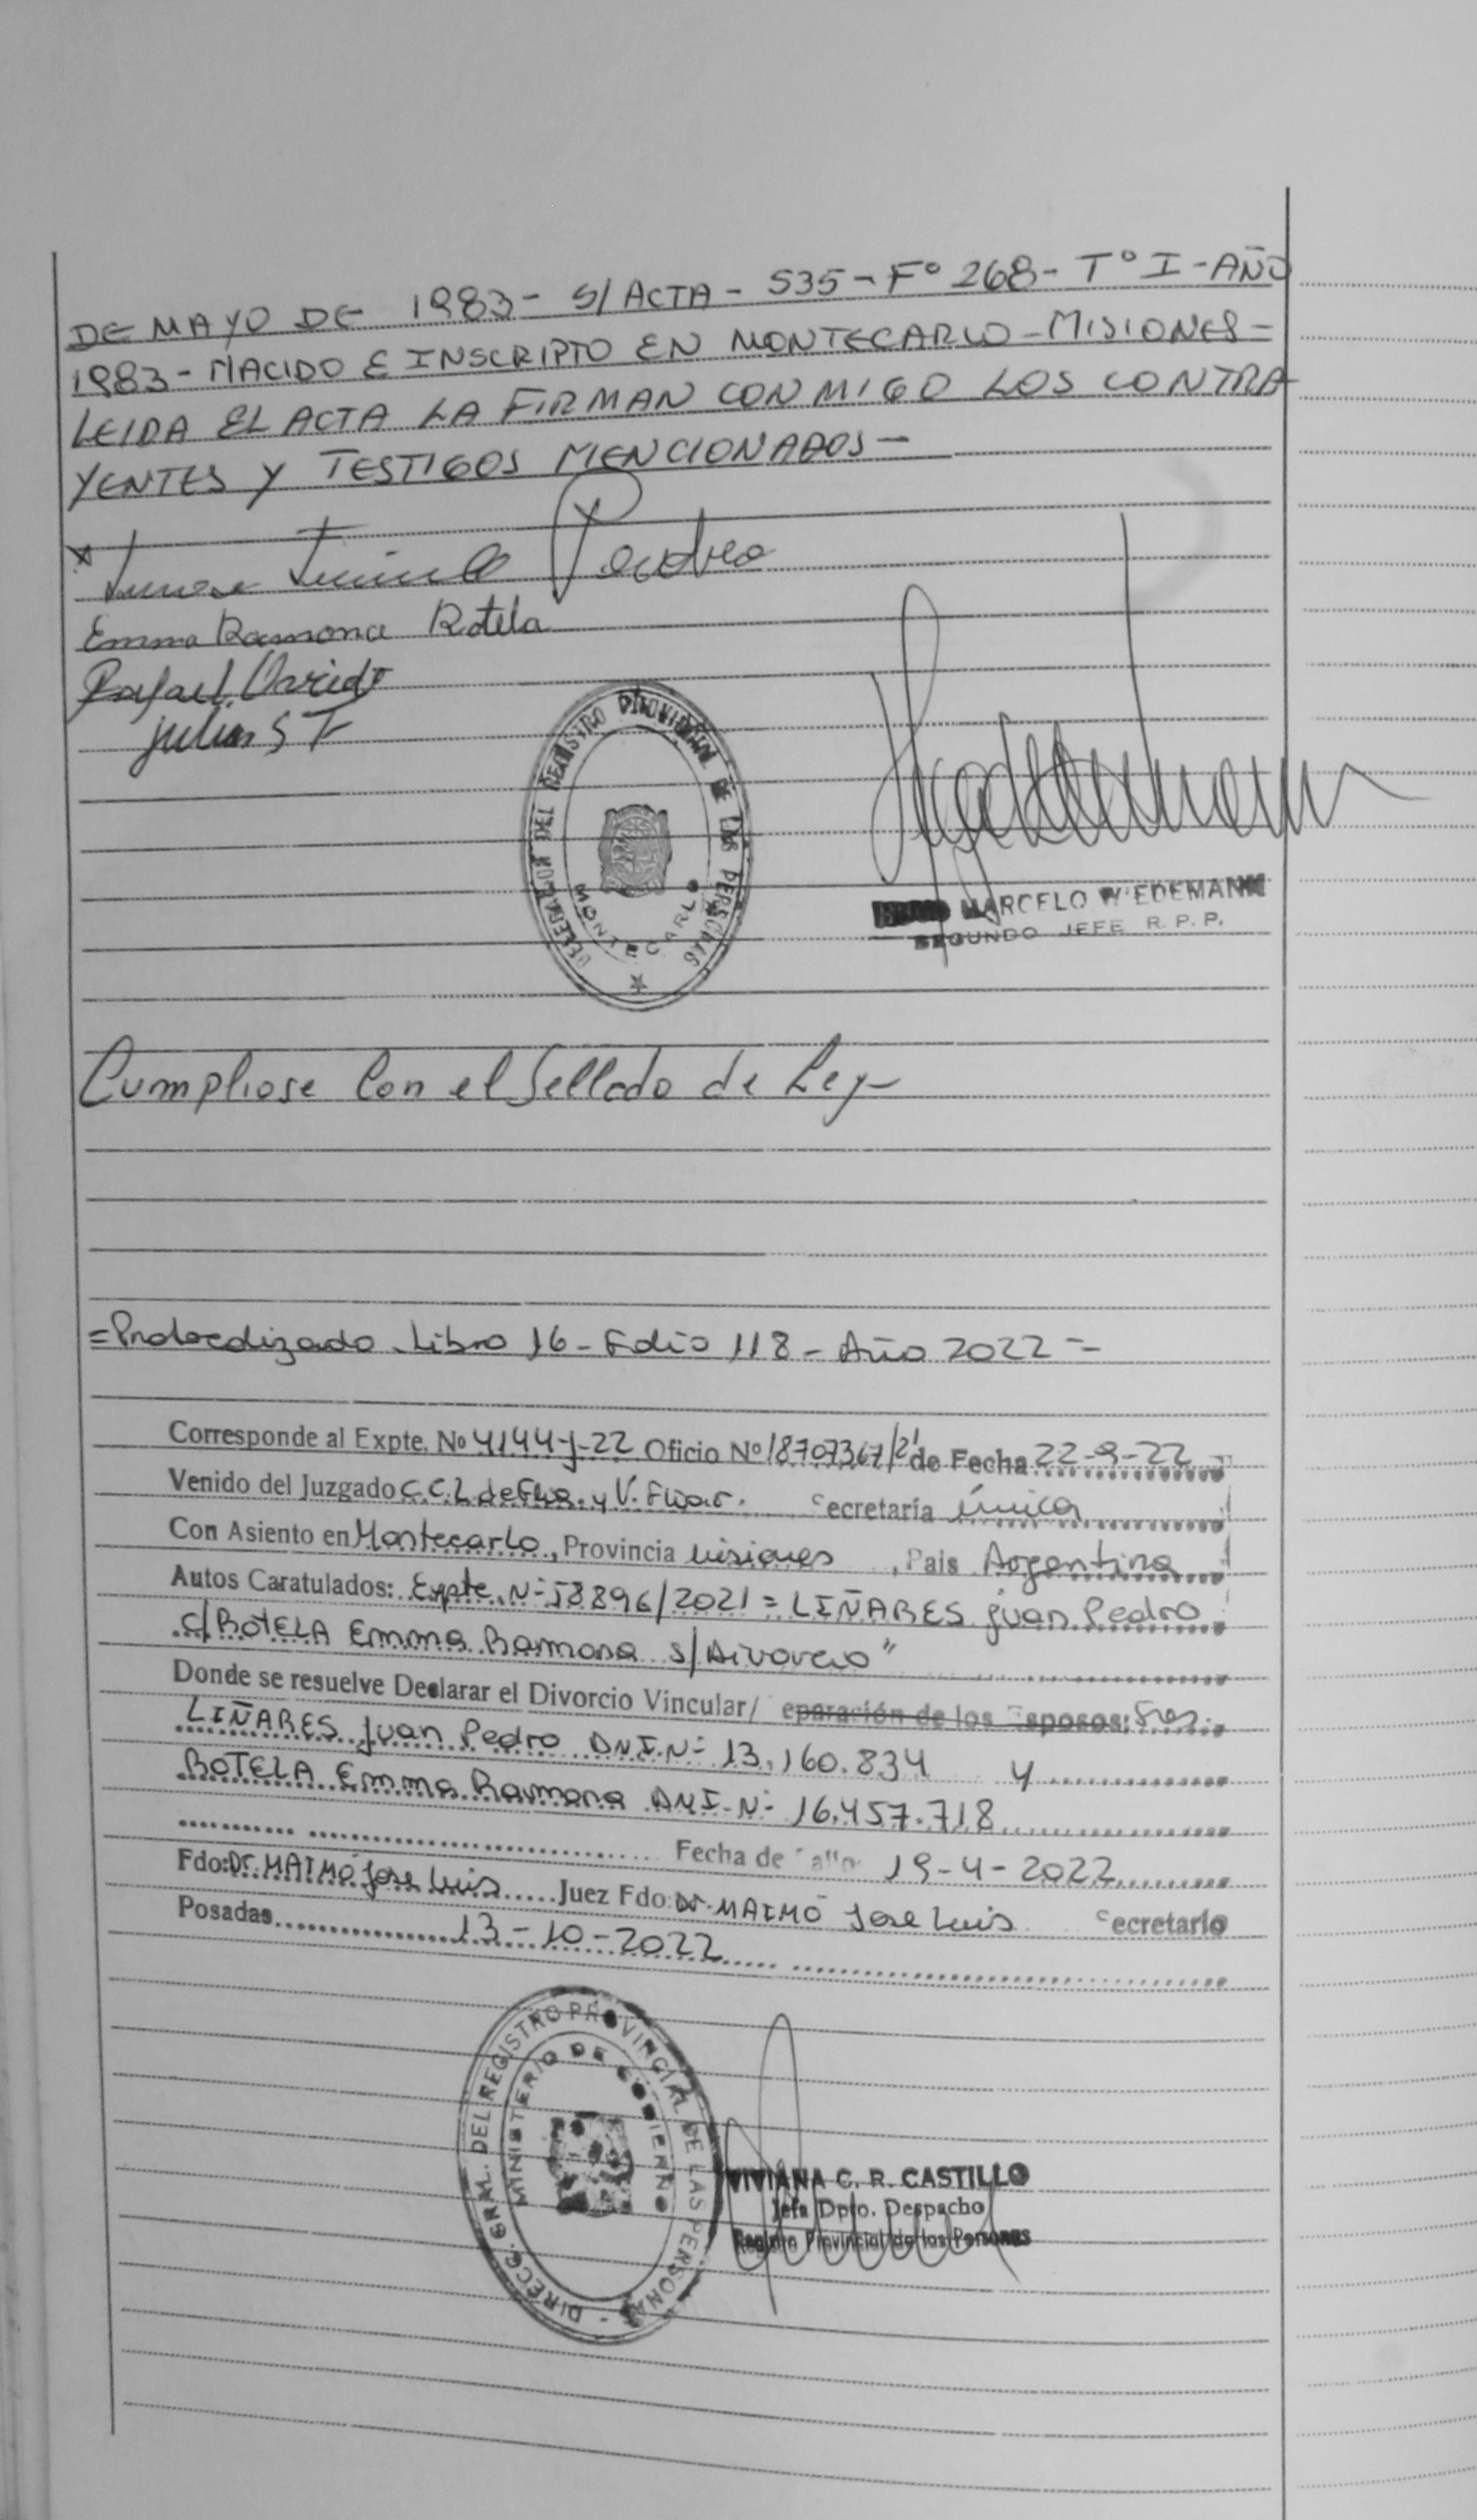 DE MAYO DE 1983- S/ ACTA - 535 - Fº 268 - Tº I - AÑO
1983 - NACIDO E INSCRIPTO EN MONTECARLO - MISIONES -
LEIDA EL ACTA LA FIRMAN CONMIGO LOS CONTRA
YENTES Y TESTIGOS MENCIONADOS -
Emma Ramona Rotela
Rafael
DELEGACION DEL REGISTRO PROVINCIAL DE LAS PERSONAS
MONTECARLO
MARCELO WIEDEMANN
SEGUNDO JEFE R. P. P.
Cumpliose Con el Sellado de Ley -
= Protocolizado - Libro 16 - Folio 118 - Año 2022 =
Corresponde al Expte. Nº 4144-J-22 Oficio Nº 18707367/21 de Fecha 22-9-22
Venido del Juzgado C.C.L de Flia. y V. Fliar. Secretaría Única
Con Asiento en Montecarlo, Provincia Misiones, Pais Argentina
Autos Caratulados: Expte. Nº 58896/2021 = LIÑARES Juan Pedro
c/ ROTELA Emma Ramona s/ Divorcio"
Donde se resuelve Declarar el Divorcio Vincular/ eparación de los Esposos: Sres.
LIÑARES Juan Pedro DNI. Nº 13.160.834 y
ROTELA Emma Ramona DNI. Nº 16.457.718
Fecha de Fallo 19-4-2022
Fdo: Dr. MAIMÓ Jose Luis Juez Fdo: Dr. MAIMÓ Jose Luis Secretario
Posadas 13-10-2022
DIRECC. GRAL. DEL REGISTRO PROVINCIAL DE LAS PERSONAS
MINISTERIO DE GOBIERNO
VIVIANA C. R. CASTILLO
Jefa Dpto. Despacho
Registro Provincial de las Personas